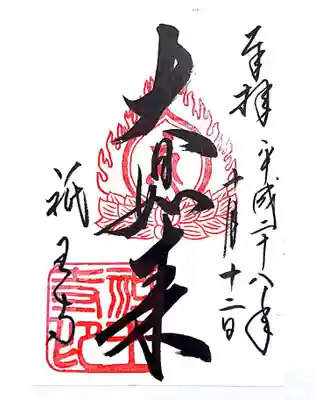 奉拝
平成二十八年
月十二日
大日如来
祇王寺
祇王寺印